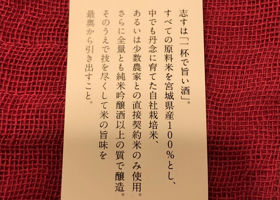 志すは「一杯で旨い酒」。
すべての原料米を宮城県産100%とし、
中でも丹念に育てた自社栽培米、
あるいは少数農家との直接契約米のみ使用。
さらに全量とも純米吟醸酒以上の質で醸造。
そのうえで技を尽くして米の旨味を
最奥から引き出すこと。